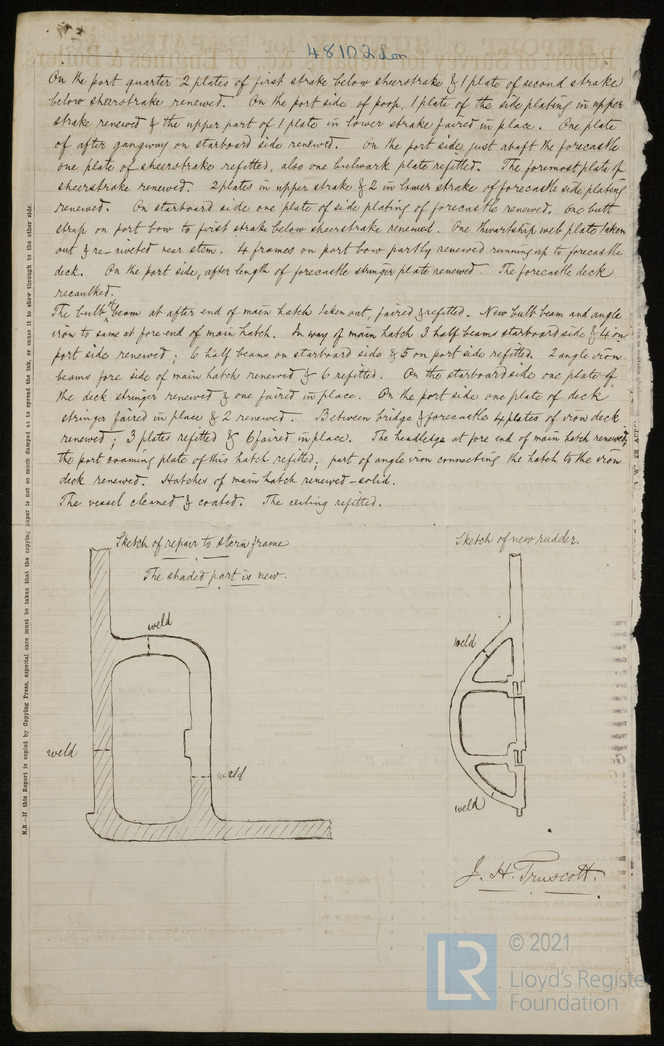 48102 Lon
On the port quarter 2 plates of first strake below sheerstrake & 1 plate of second strake
below sheerstrake renewed. On the port side of poop, 1 plate of the side plating in upper
strake renewed & the upper part of 1 plate in lower strake faired in place. One plate
of after gangway on starboard side renewed. On the port side just abaft the forecastle
one plate of sheerstrake refitted, also one bulwark plate refitted. The foremost plate of
sheerstrake renewed. 2 plates in upper strake & 2 in lower strake of forecastle side plating
renewed. On starboard side one plate of side plating of forecastle renewed. One butt
strap on port bow to first strake below sheerstrake renewed. One thwartship web plate taken
out & re-riveted near stem. 4 frames on port bow partly renewed running up to forecastle
deck. On the port side, after length of forecastle stringer plate renewed. The forecastle deck
recaulked.
The bulb beam at after end of main hatch taken out, faired & refitted. New bulb beam and angle
iron to same at fore end of main hatch. In way of main hatch 3 half beams starboard side & 4 on
port side renewed; 6 half beams on starboard side & 5 on port side refitted. 2 angle iron
beams fore side of main hatch renewed & 6 refitted. On the starboard side one plate of
the deck stringer renewed & one faired in place. On the port side one plate of deck
stringer faired in place & 2 renewed. Between bridge & forecastle 4 plates of iron deck
renewed; 3 plates refitted & 6 faired in place. The headledge at fore end of main hatch renewed,
the port coaming plate of this hatch refitted; part of angle iron connecting the hatch to the iron
deck renewed. Hatches of main hatch renewed - solid.
The vessel cleaned & coated. The ceiling refitted.
Sketch of repair to stern frame
The shaded part is new.
weld
weld
weld
Sketch of new rudder.
weld
weld
J. H. Truscott.
N.B.—If this Report is copied by Copying Press, especial care must be taken that the copying paper is not so much damped as to spread the ink, or cause it to show through to the other side.
LR
© 2021
Lloyd's Register
Foundation